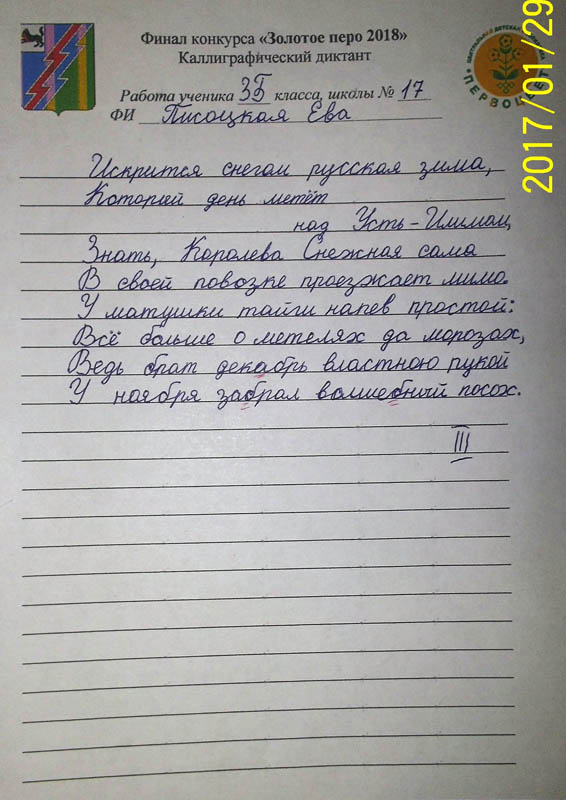 Финал конкурса «Золотое перо 2018»
Каллиграфический диктант
Работа ученика 3Б класса, школы № 17
ФИ Писоцкая Ева
ПЕРВОЦВЕТ
2017/01/29
Искрится снегом русская зима,
Который день метёт
над Усть-Илимом,
Знать, Королева Снежная сама
В своей повозке проезжает мимо.
У матушки тайги напев простой:
Всё больше о метелях да морозах,
Ведь брат декабрь властною рукой
У ноября забрал волшебный посох.
III